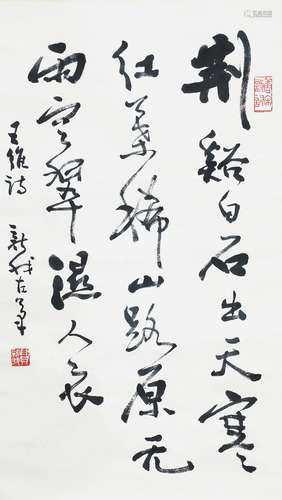 荆谿白石出天寒
红葉稀山路原无
雨空翠濕人衣
王维诗 新我左笔